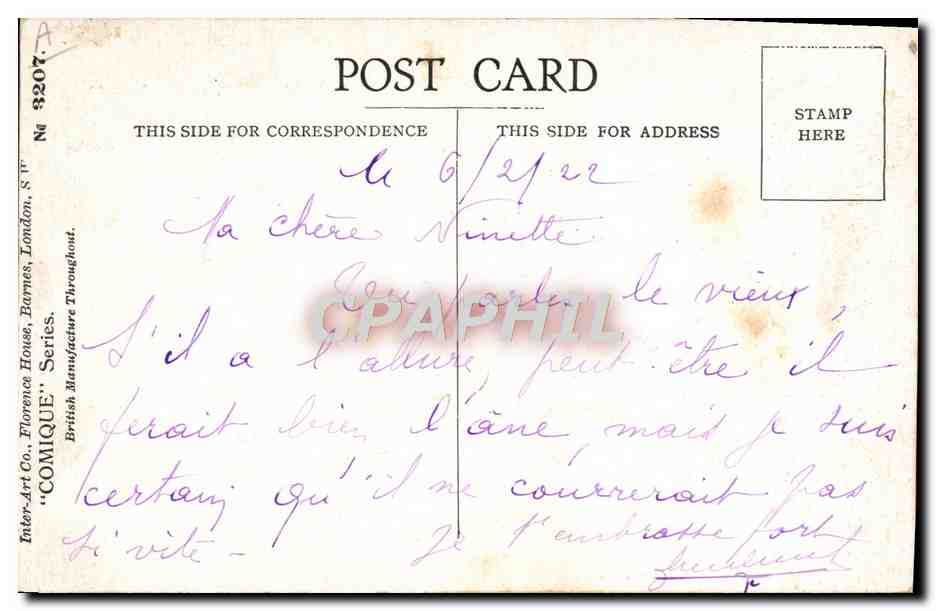 A
POST CARD
THIS SIDE FOR CORRESPONDENCE
THIS SIDE FOR ADDRESS
STAMP
HERE
No 3207.
Inter-Art Co., Florence House, Barnes, London, S W
"COMIQUE" Series.
British Manufacture Throughout.
le 6/2/22
Ma chère Ninette
le vieux,
S'il a l'allure, peut être il
ferait bien l'âne, mais je suis
certain qu'il ne courrerait pas
si vite - Je t'embrasse fort
CPAPHIL